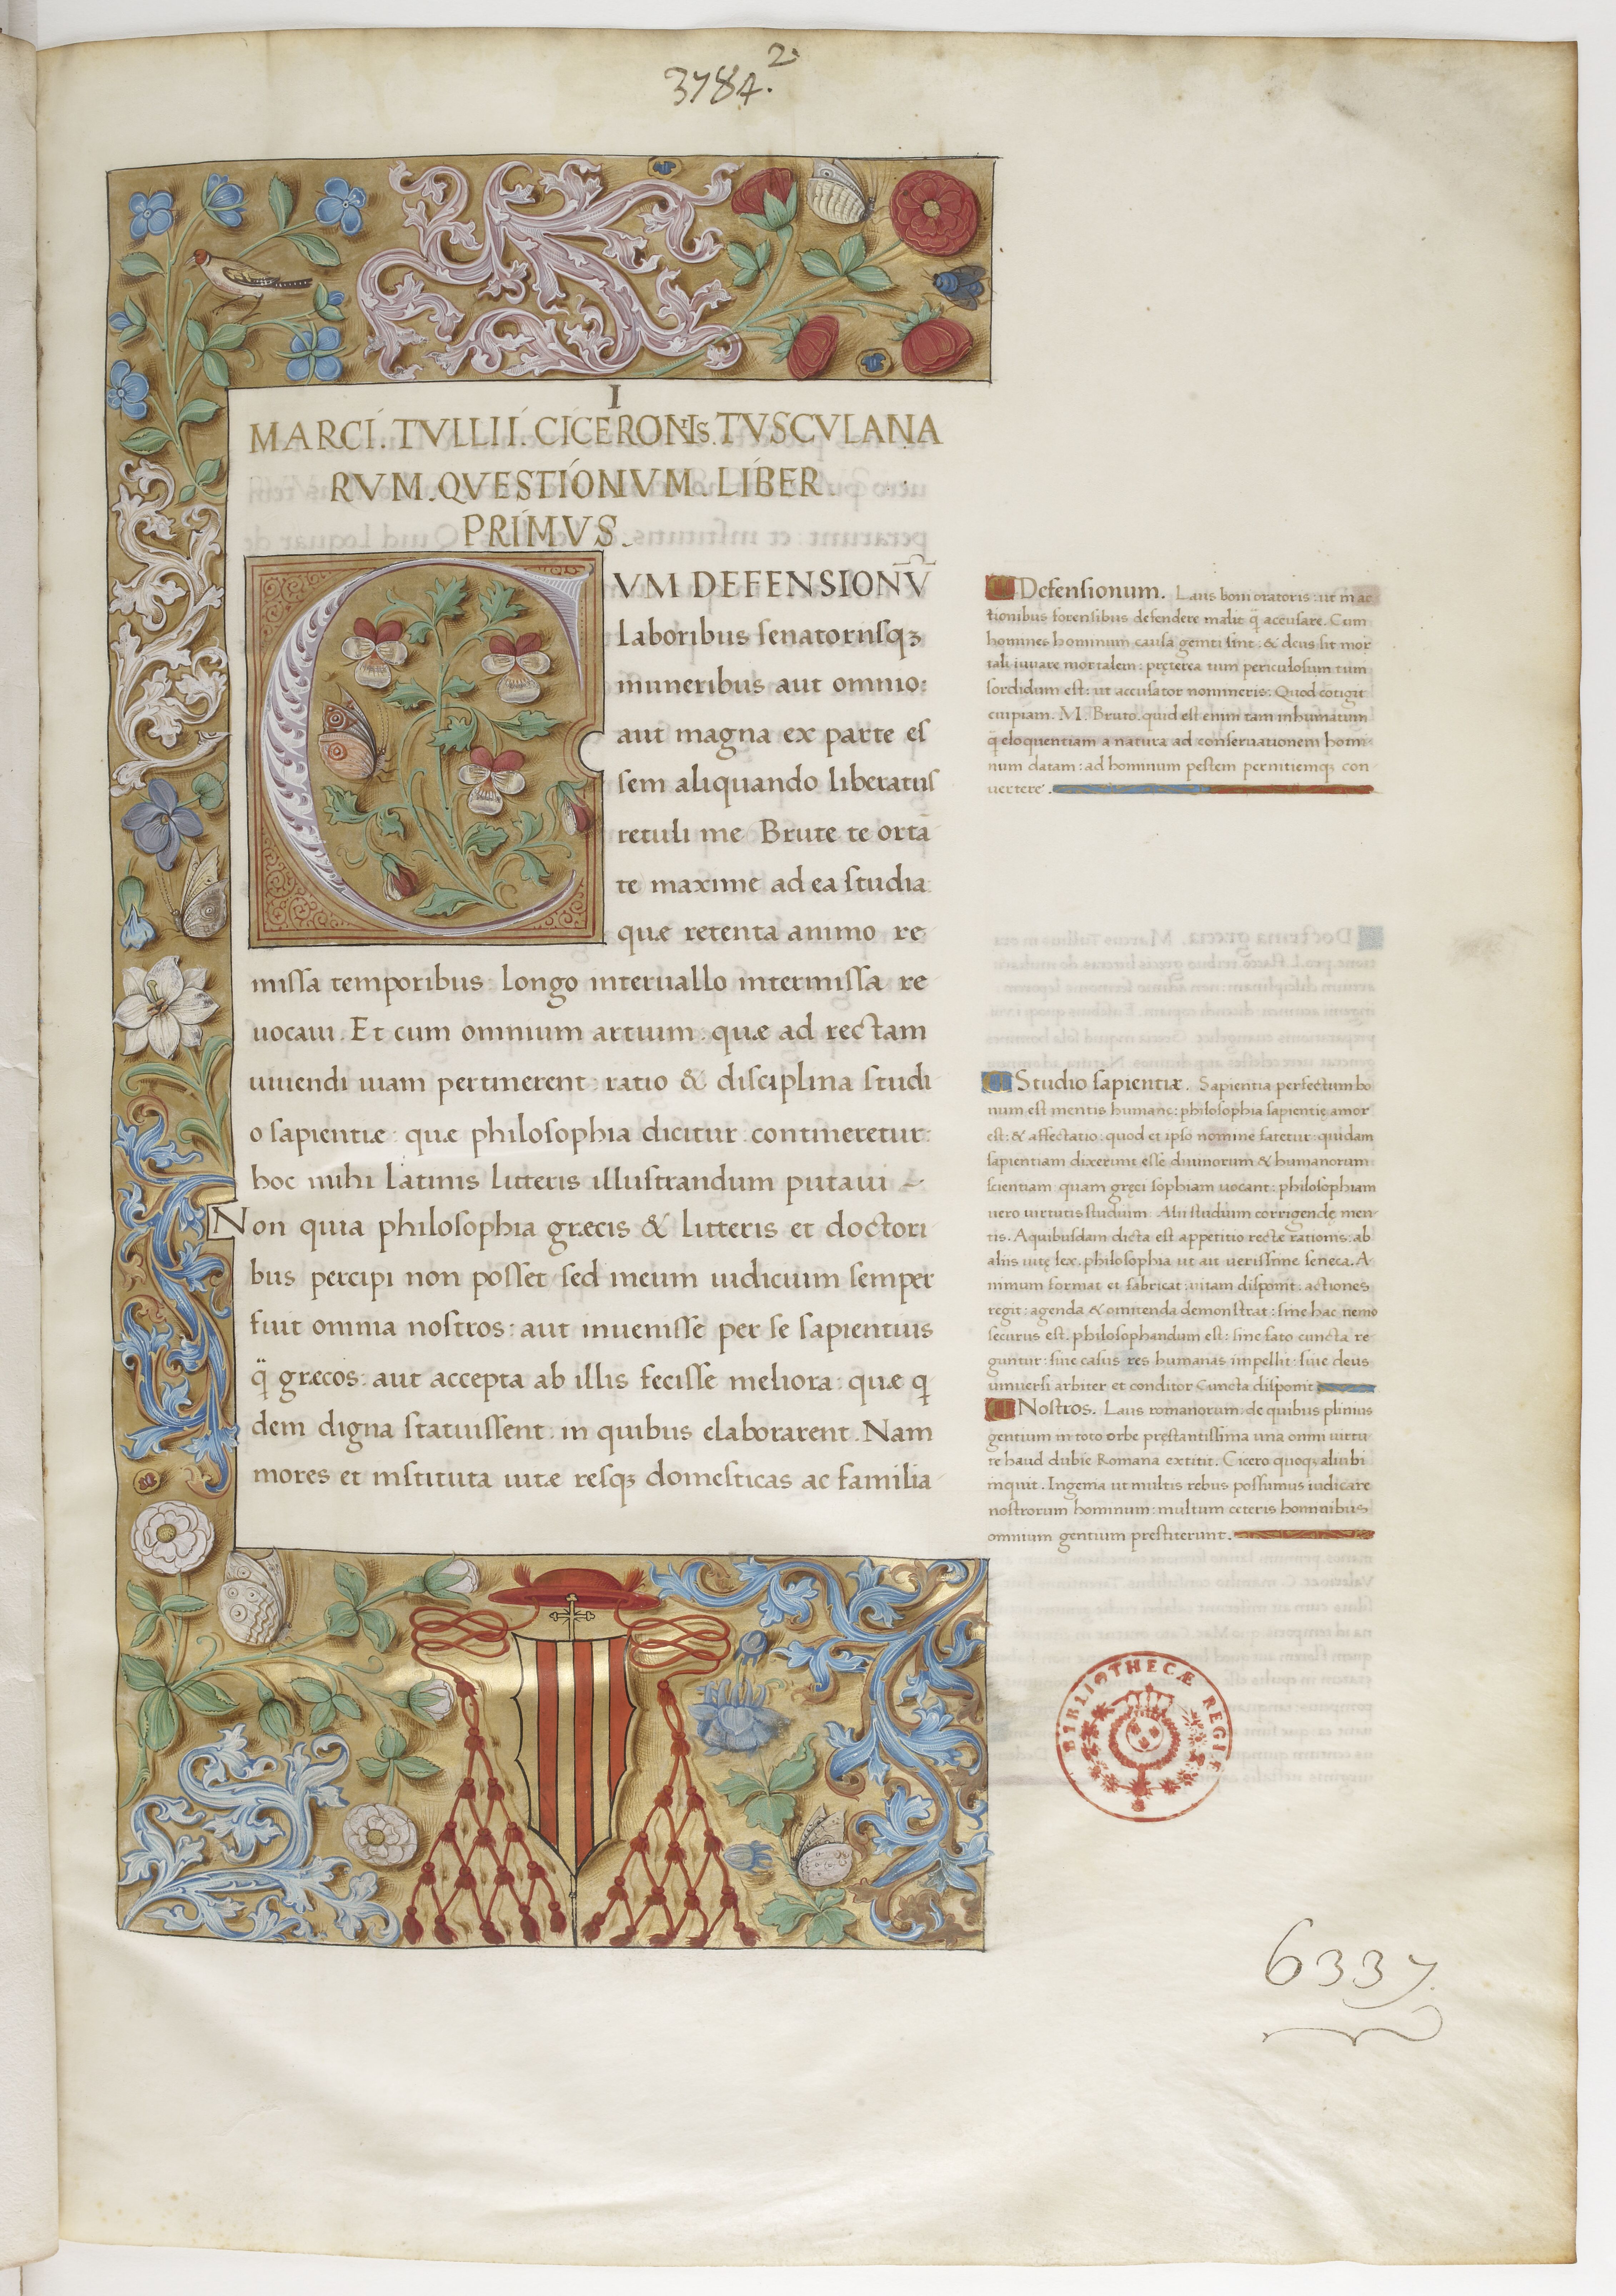 3784.2
I
MARCI. TVLLII. CICERONIS. TVSCVLANA
RVM. QVESTIONVM. LIBER.
PRIMVS.
CVM DEFENSIONV̄
laboribus senatoriisqꝫ
muneribus aut omnio:
aut magna ex parte es
sem aliquando liberatus
retuli me Brute te orta᷒
te maxime ad ea studia
quæ retenta animo re
missa temporibus: longo interuallo intermissa re
uocaui. Et cum omnium artium: quæ ad rectam
uiuendi uiam pertinerent: ratio & disciplina studi
o sapientiæ: quæ philosophia dicitur: contineretur:
hoc mihi Latinis litteris illustrandum putaui
Non quia philosophia græcis & litteris et doctori
bus percipi non posset sed meum iudicium semper
fuit omnia nostros: aut inuenisse per se sapientius
q̈ græcos: aut accepta ab illis fecisse meliora: quæ q
dem digna statuissent: in quibus elaborarent. Nam
mores et instituta uitæ resqꝫ domesticas ac familia
Defensionum. Laus boni oratoris: ut in ac
tionibus forensibus defendere malit q̈ accusare. Cum
homines hominum causa geniti sint: & deus sit mor
tali iuuare mortalem: pręterea tum periculosum tum
sordidum est: ut accusator nomineris: Quod cotigit
cuipiam. M. Bruto. quid est enim tam inhumanum
q̈ eloquentiam a natura ad conseruationem homi
num datam: ad hominum pestem pernitiemqꝫ con
uertere.
Studio sapientiæ. Sapientia perfectum bo
num est mentis humane: philosophia sapientię amor
est: & affectatio: quod et ipso nomine fatetur: quidam
sapientiam dixerunt esse diuinorum & humanorum
scientiam: quam gręci sophiam uocant: philosophiam
uero uirtutis studium. Alii studium corrigendę men
tis. A quibusdam dicta est appetitio rectæ rationis: ab
aliis uitę lex. philosophia ut ait uerissime seneca. A
nimum format et fabricat: uitam disponit: actiones
regit: agenda & omittenda demonstrat: sine hac nemo
securus est. philosophandum est: siue fato cuncta re
guntur: siue casus res humanas impellit: siue deus
uniuersi arbiter et conditor cuncta disponit
Nostros. Laus romanorum: de quibus plinius
gentium in toto orbe pręstantissima una omni uirtu
te haud dubie Romana extitit. Cicero quoqꝫ aliubi
inquit. Ingenia ut multis rebus possumus iudicare
nostrorum hominum: multum ceteris hominibus
omnium gentium prestiterunt.
BIBLIOTHECÆ REGIÆ
6337.